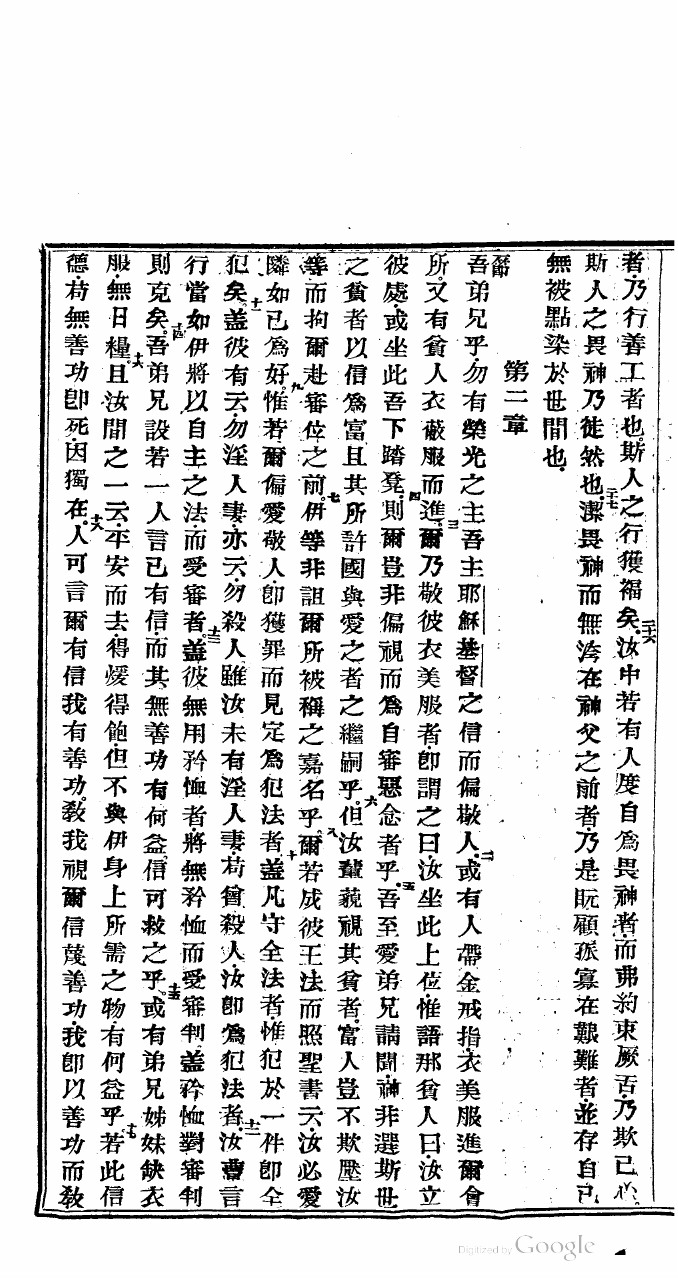 者乃行善工者也斯人之行獲福矣二十六汝中若有人度自為畏神者而弗約束厥舌乃欺己心
斯人之畏神乃徒然也二十七潔畏神而無污在神父之前者乃是眖顧孤寡在艱難者並存自己
無被點染於世間也
第二章
吾弟兄乎勿有榮光之主吾主耶穌基督之信而偏敬人二或有人帶金戒指衣美服進爾會
所又有貧人衣蔽服而進三爾乃敬彼衣美服者即謂之曰汝坐此上位惟語那貧人曰汝立
彼處或坐此吾下踏凳四則爾豈非偏視而為自審惡念者乎五吾至愛弟兄請聞神非選斯世
之貧者以信為富且其所許國與愛之者之繼嗣乎六但汝輩藐視其貧者富人豈不欺壓汝
等而拘爾赴審位之前七伊等非詛爾所被稱之嘉名乎八爾若成彼王法而照聖書云汝必愛
隣如己為好九惟若爾偏愛敬人即獲罪而見定為犯法者十蓋凡守全法者惟犯於一件即全
犯矣十一蓋彼有云勿淫人妻亦云勿殺人雖汝未有淫人妻苟曾殺人汝即為犯法者十二汝曹言
行當如伊將以自主之法而受審者十三蓋彼無用矜恤者將無矜恤而受審判蓋矜恤對審判
則克矣十四吾弟兄設若一人言已有信而其無善功有何益信可救之乎十五或有弟兄姊妹缺衣
服無日糧十六且汝間之一云平安而去得煖得飽但不與伊身上所需之物有何益乎十七若此信
德苟無善功即死因獨在十八人可言爾有信我有善功敎我視爾信蔑善功我即以善功而敎
Digitized by Google